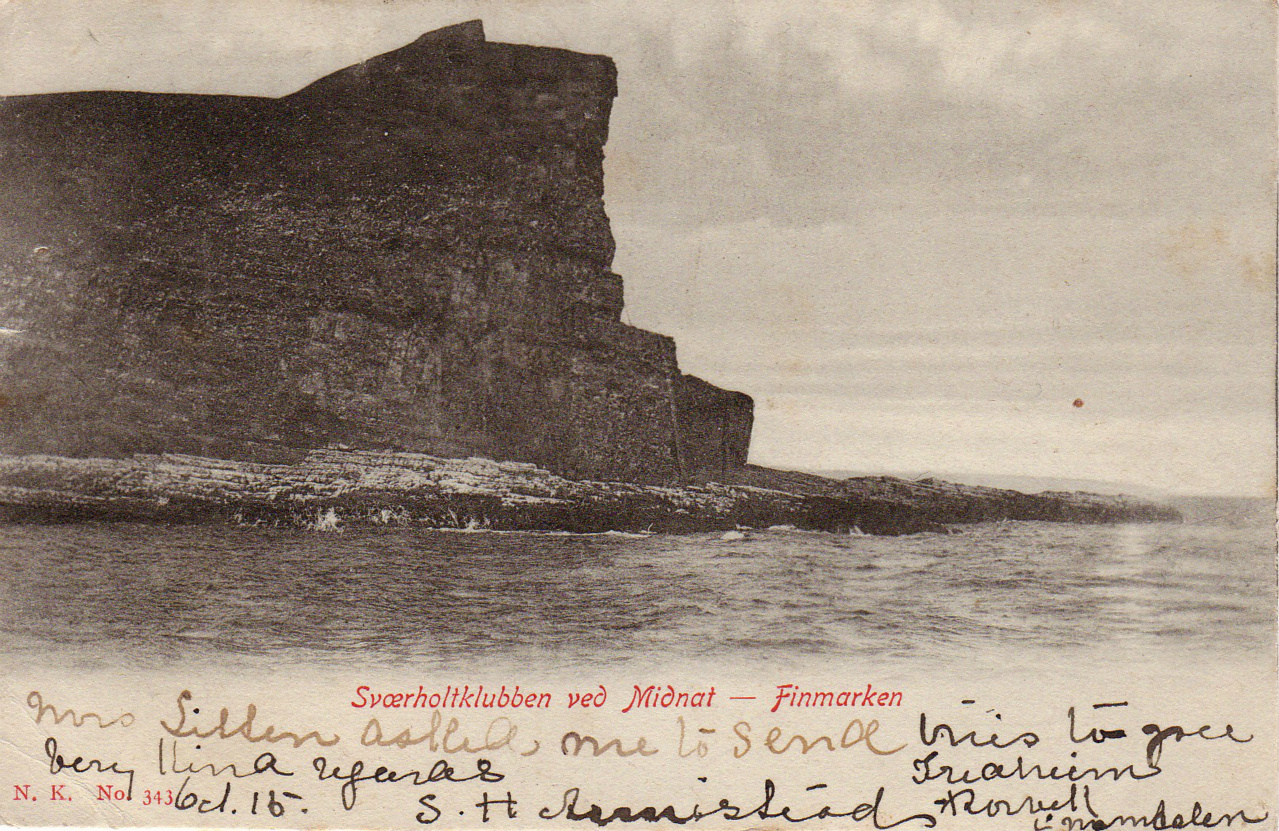 Sværholtklubben ved Midnat — Finmarken
Mrs Sitten asked me to send this to you
very kind regards
N. K. No. 343
Oct. 15. S. H Armistead
i namdalen